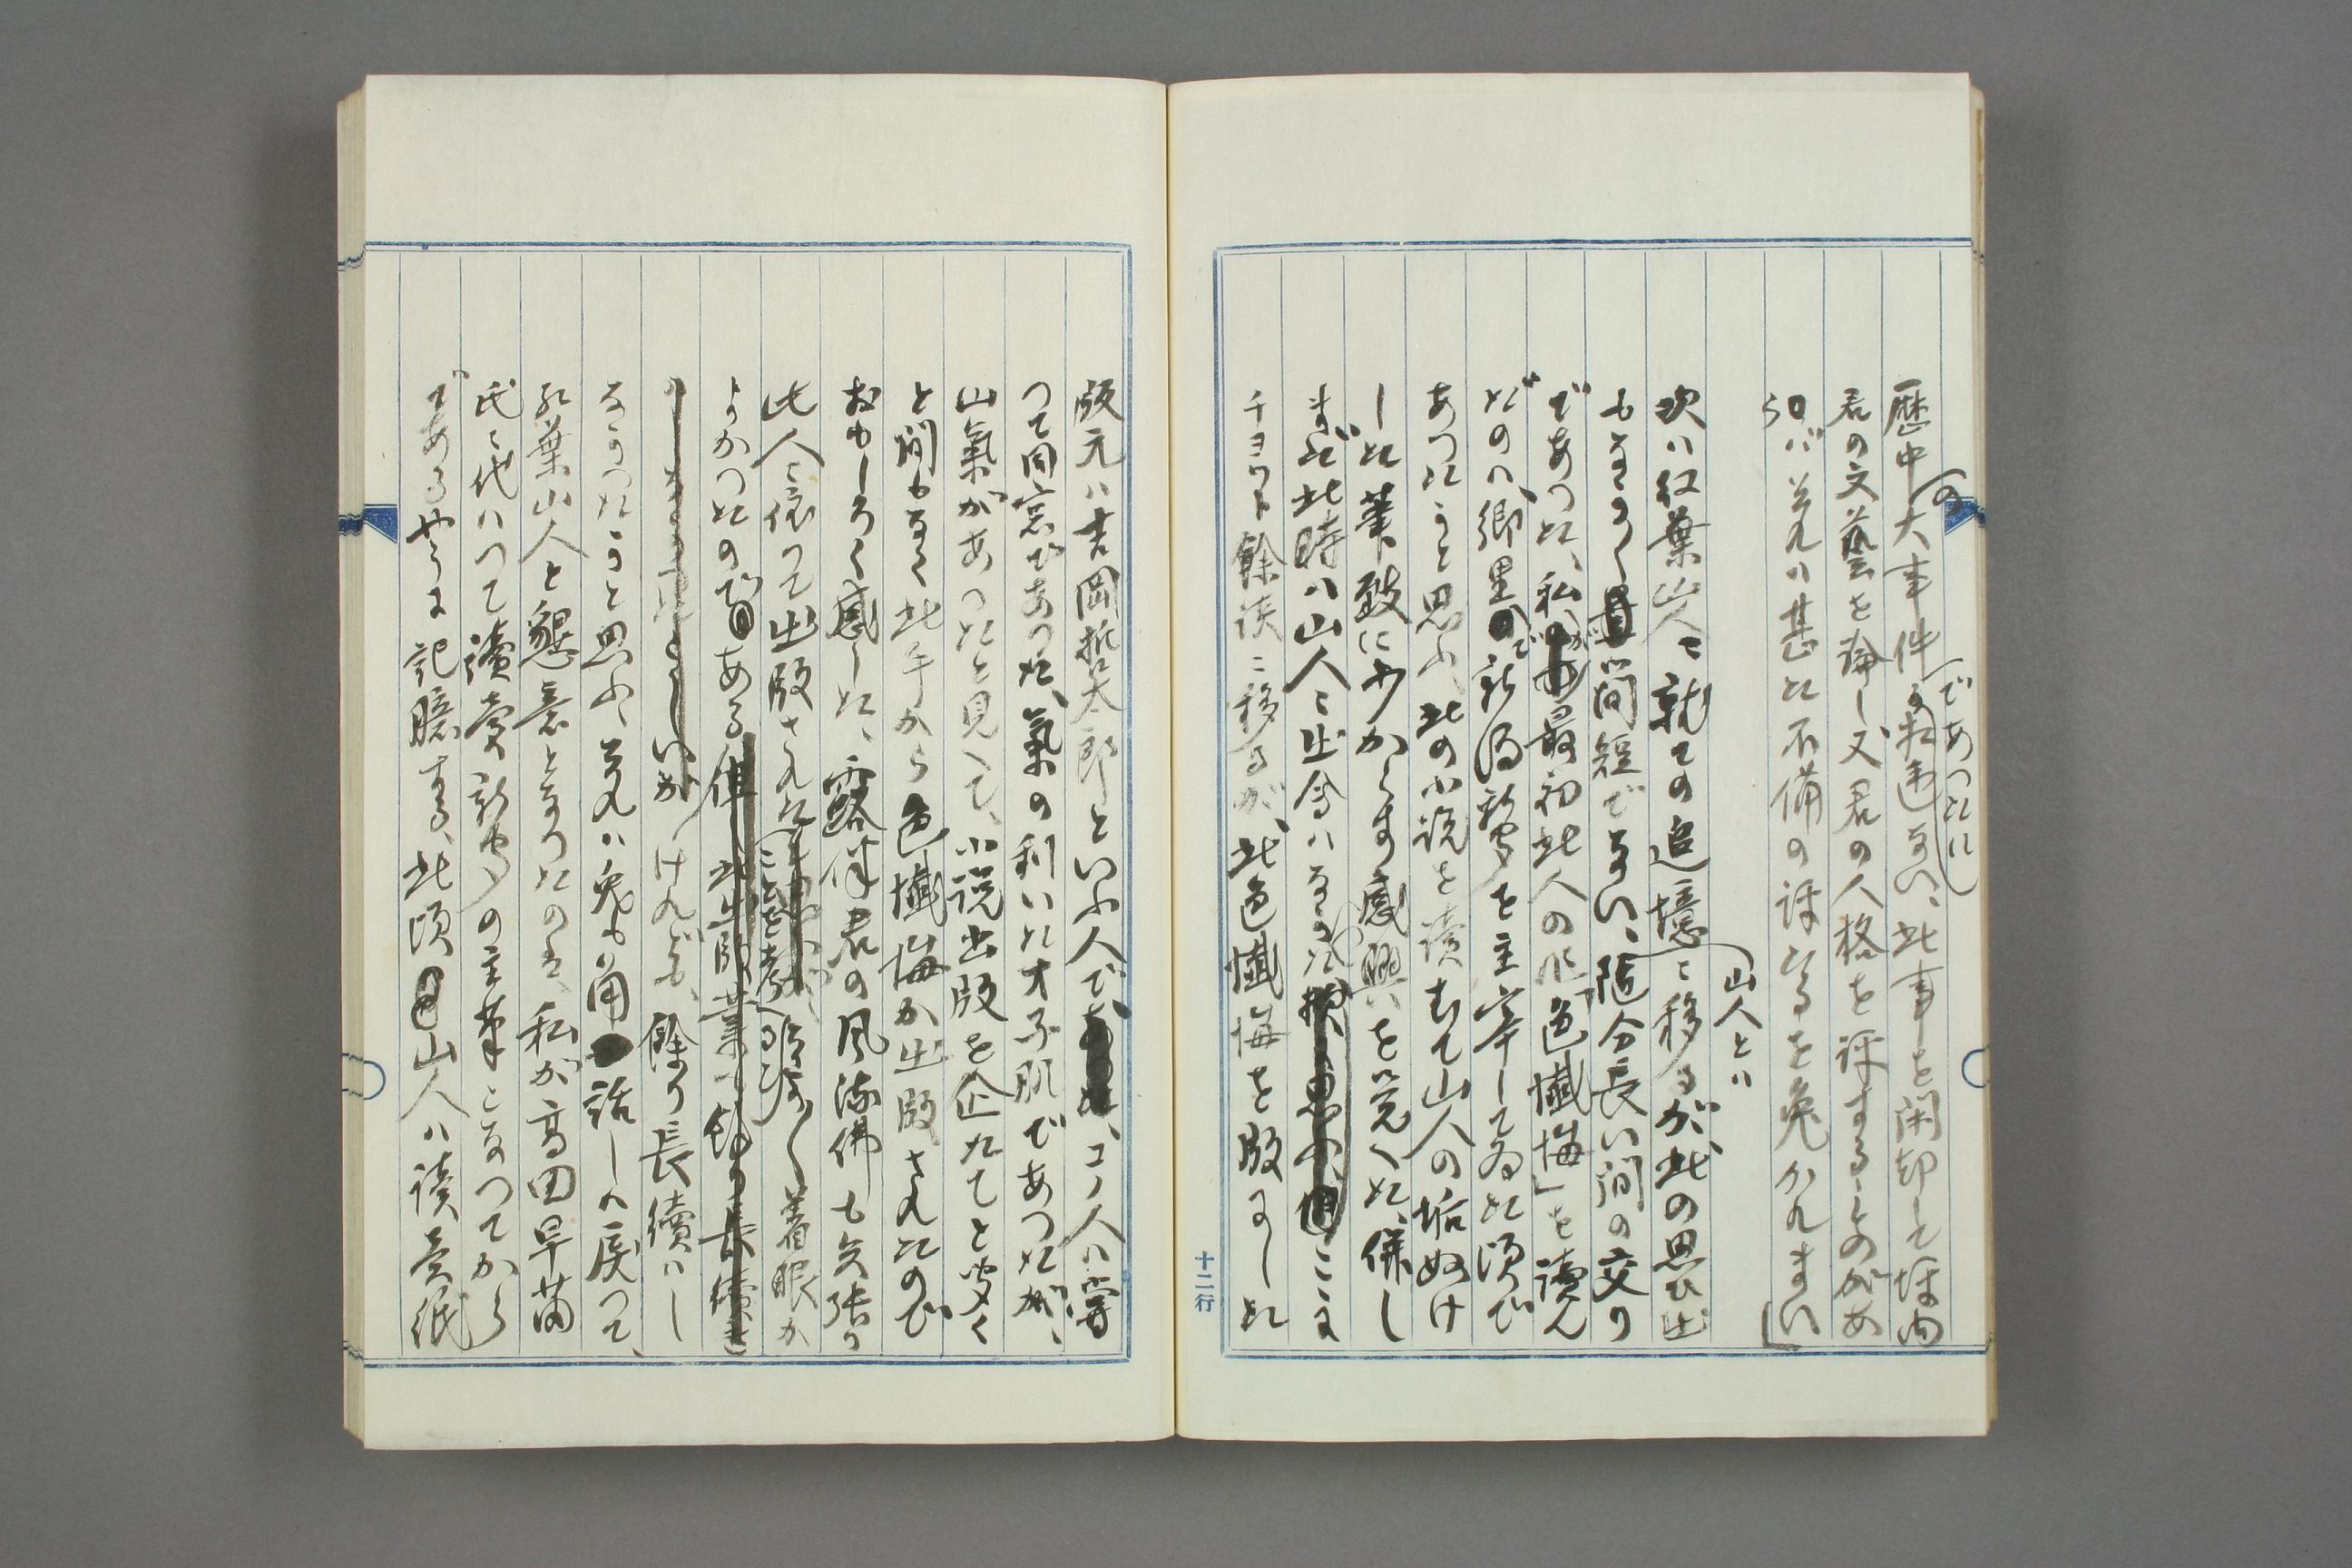 歴中の大事件であつたに相違ない、此事を閑却して坪内
君の文藝を論し又君の人格を評するものがあ
らバ其れハ甚だ不備の評たるを免かれまい
次ハ紅葉山人に就ての追憶に移るが、此の思ひ出
も山人とハ間短でない、随分長い間の交り
であつた、私が最初此人の作「色懺悔」を読ん
だのハ、郷里で新潟新聞を主宰してゐた頃で
あつたらうと思ふ、此の小説を読むで山人の垢ぬけ
した筆致に少からず感興を覚へた、併し
まだ此時ハ山人に出会ハなかつた、こゝに
チヨツト餘談に移るが、此色懺悔を版にした
十二行
版元ハ吉岡哲太郎といふ人で、コノ人ハ嘗
つて同窓であつた、氣の利いた才子肌であつたが、
山氣があつたと見へて、小説出版を企たてと聞く
と間もなく此手から色懺悔が出版されたので
おもしろく感した、露伴君の風流佛も矢張り
此人に依つて出版されたことを考へると着眼が
よかつたのである
いがけれども、餘り長續ハし
なかつたらうと思ふ、其れハ兎も角話しハ戻つて、
紅葉山人と懇意となつたのは、私が高田早苗
氏に代ハつて讀賣新聞の主筆となつてから
であるやうに記臆する、此頃山人ハ讀賣紙